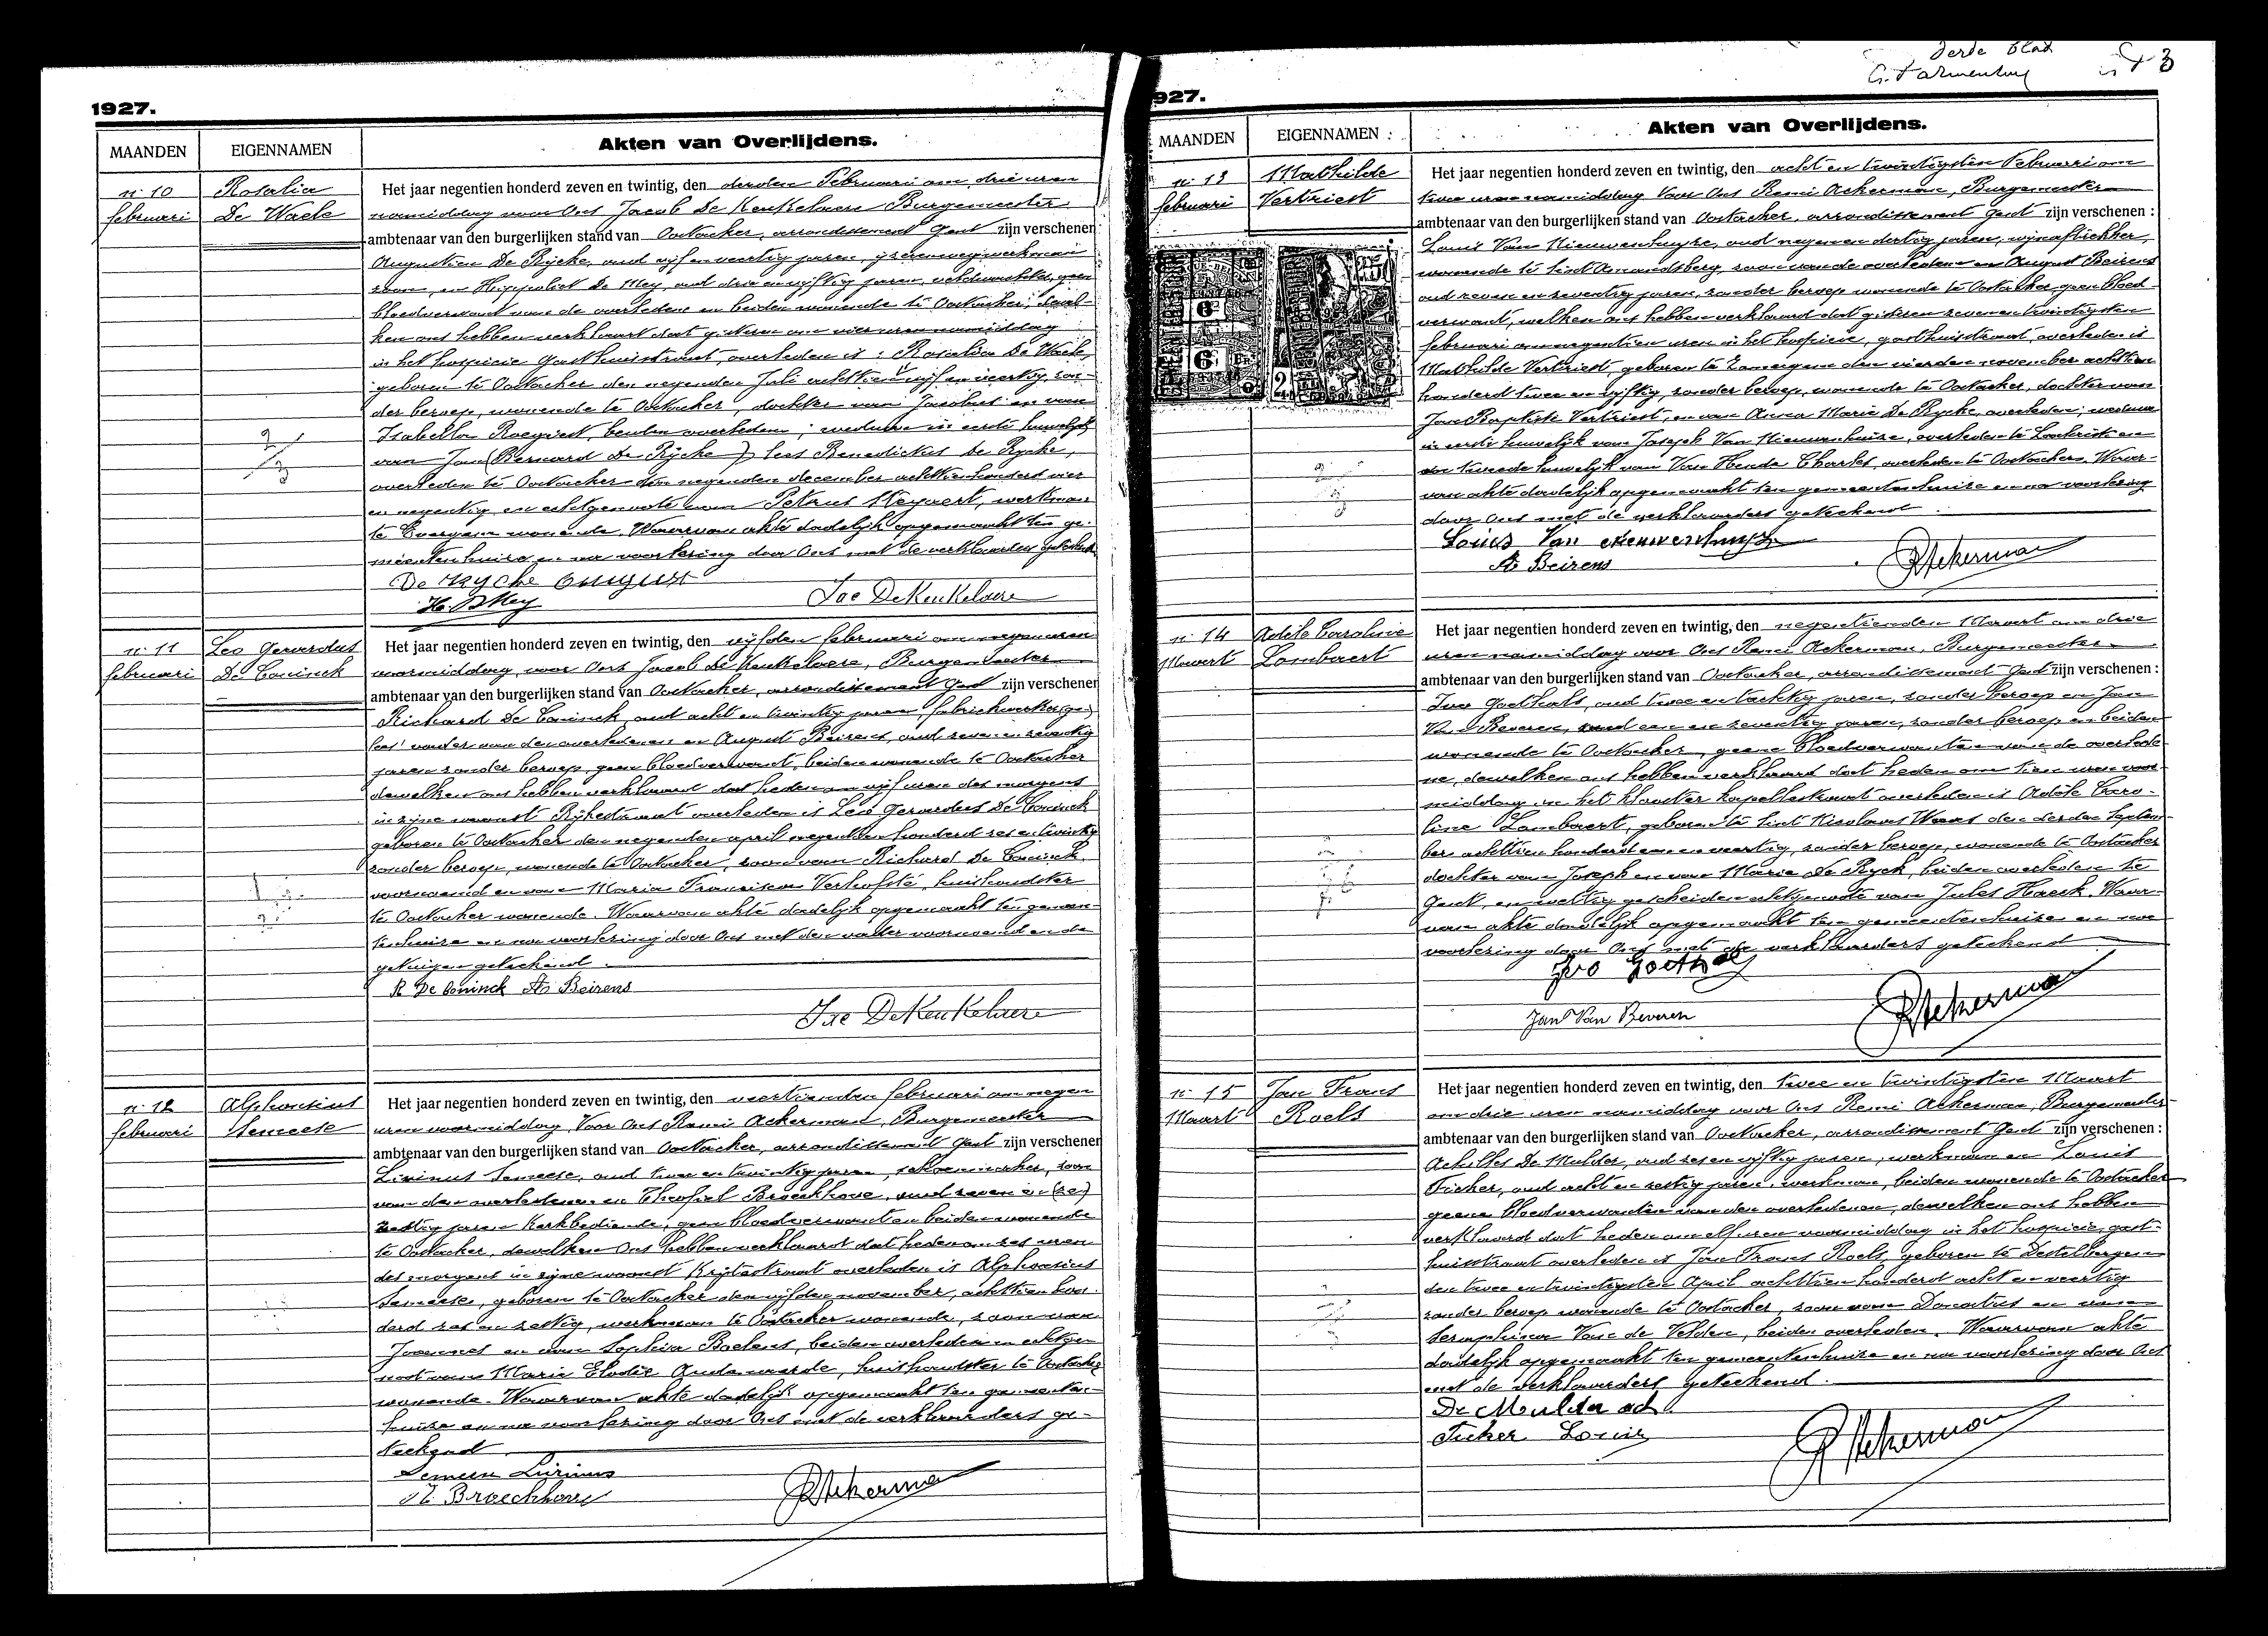 1927.
MAANDEN
EIGENNAMEN
Akten van Overlijdens.
n: 10
februari
Rosalia
De Waele
Het jaar negentien honderd zeven en twintig, den derden Februari om drie uren
namiddag voor Ons Jacob De Keukelaere Burgemeester
ambtenaar van den burgerlijken stand van Oostacker, arrondissement Gent zijn verschenen
Augustien De Rycke, oud vijf en veertig jaren, ijzerenwegwerkman
zoon, en Hippoliet De Mey, oud drie en vijftig jaren, veldwachter, geen
bloedverwant van de overledene en beiden wonende te Oostacker; dewel-
ken ons hebben verklaard dat gisteren om vier uren namiddag
in het hospicie Gasthuisstraat, overleden is: Rosalia De Waele,
geboren te Oostacker den negenden Juli achttien vijf en veertig, zon-
der beroep, wonende te Oostacker, dochter van Jacobus en van
Isabella Roegiest, beiden overleden; weduwe in eerste huwelijk
van Jan (Bernard De Rycke) lees Benedictus De Rycke,
overleden te Oostacker den negenden december achttienhonderd vier
en negentig en echtgenoote van Petrus Heyvaert, werkman
te Evergem wonende. Waarvan akte dadelijk opgemaakt ten ge-
meentenhuize en na voorlezing door Ons met de verklaarders geteekend
De Rycke August
H. D Mey
Jac DeKeukelaere
n: 11
februari
Leo Gerardus
De Coninck
Het jaar negentien honderd zeven en twintig, den vijfden februari om negen uren
voormiddag, voor Ons Jacob De Keukelaere, Burgemeester
ambtenaar van den burgerlijken stand van Oostacker, arrondissement Gent zijn verschenen
Richard De Coninck, oud acht en twintig jaren, fabriekwerker
vader van den overledenen en August Beirens, oud zeven en zeventig
jaren zonder beroep, geen bloedverwant, beiden wonende te Oostacker
dewelken ons hebben verklaard dat heden om vijf uren des morgens
in zijne woonst Rijkestraat overleden is Leo Gerardus De Coninck
geboren te Oostacker den negenden april negentien honderd zes en twintig
zonder beroep, wonende te Oostacker, zoon van Richard De Coninck
voornoemd en van Maria Francisca Verhofsté, huishoudster
te Oostacker wonende. Waarvan akte dadelijk opgemaakt ten gemeen-
tenhuize en na voorlezing door Ons met den vader voornoemd en de
getuigen geteekend.
R De Coninck As Beirens
Jac DeKeukelaere
n: 12
februari
Alphonsius
Semeese
Het jaar negentien honderd zeven en twintig, den veertienden februari om negen
uren voormiddag, Voor Ons Remi Ackerman, Burgemeester
ambtenaar van den burgerlijken stand van Oostacker, arrondissement Gent zijn verschenen
Livinus Semeese, oud twee en twintig jaren, schoenmaker, zoon
van den overledenen en Theofiel Broeckhove, oud zeven en (ze)
zestig jaren Kerkbediende, geen bloedverwant en beiden wonende
te Oostacker, dewelken Ons hebben verklaard dat heden om zes uren
des morgens in zijne woonst Krijtestraat overleden is Alphonsius
Semeese, geboren te Oostacker den vijfden november, achttien hon-
derd zes en zestig, werkman te Oostacker wonende, zoon van
Joannes en van Sophia Baetens, beiden overleden en echtge-
noot van Marie Elodie Oudenaarde, huishoudster te Oostacker
wonende. Waarvan akte dadelijk opgemaakt ten gemeenten-
huize en na voorlezing door Ons met de verklaarders ge-
teekend.
Semeese Livinus
T Broeckhove
R Ackerman
derde blad
3
927.
MAANDEN
EIGENNAMEN
Akten van Overlijdens.
n: 13
februari
Mathilde
Vertriest
Het jaar negentien honderd zeven en twintig, den acht en twintigsten Februari om
twee uren namiddag Voor Ons Remi Ackerman, Burgemeester
ambtenaar van den burgerlijken stand van Oostacker, arrondissement Gent zijn verschenen:
Louis Van Nieuwenhuyse, oud negen en dertig jaren, wijnaftrekker,
wonende te Sint Amandsberg, zoon van de overledene en August Beirens
oud zeven en zeventig jaren, zonder beroep wonende te Oostacker geen bloed-
verwant, welken ons hebben verklaard dat gisteren zeven en twintigsten
februari om negentien uren in het hospicie, gasthuisstraat, overleden is
Mathilde Vertriest, geboren te Zomergem den vierden november achttien
honderd twee en vijftig, zonder beroep, wonende te Oostacker, dochter van
Jan Baptiste Vertriest, en van Anna Marie De Rycke, overleden; weduwe
in eerste huwelijk van Joseph Van Nieuwenhuise, overleden te Lochristi en
in tweede huwelijk van Van Hende Charles, overleden te Oostacker. Waar-
van akte dadelijk opgemaakt ten gemeentenhuize en na voorlezing
door Ons met de verklaarders geteekend.
Louis Van Nieuwenhuyse
As Beirens
R Ackerman
n: 14
Maart
Adèle Caroline
Lambaert
Het jaar negentien honderd zeven en twintig, den negentienden Maart om drie
uren namiddag voor Ons Remi Ackerman, Burgemeester
ambtenaar van den burgerlijken stand van Oostacker, arrondissement Gent zijn verschenen:
Ivo Goethals, oud twee en tachtig jaren, zonder beroep en Jan
Van Beveren, oud een en zeventig jaren, zonder beroep en beiden
wonende te Oostacker, geene bloedverwanten van de overlede-
ne, dewelken ons hebben verklaard dat heden om tien uren voor-
middag in het klooster kapellestraat overleden is Adèle Caro-
line Lambaert, geboren te Sint Nicolaas Waas den derden Septem-
ber achttien honderd een en veertig, zonder beroep, wonende te Oostacker
dochter van Joseph en van Marie De Ryck, beiden overleden te
Gent, en wettig gescheiden echtgenoote van Jules Haeck. Waar-
van akte dadelijk opgemaakt ten gemeentenhuize en na
voorlezing door Ons met de verklaarders geteekend
Ivo Goethals
Jan Van Beveren
R Ackerman
n: 15
Maart
Jan Frans
Roels
Het jaar negentien honderd zeven en twintig, den twee en twintigsten Maart
om drie uren namiddag voor Ons Remi Ackerman, Burgemeester
ambtenaar van den burgerlijken stand van Oostacker, arrondissement Gent zijn verschenen:
Achilles De Mulder, oud zes en vijftig jaren, werkman en Louis
Ticher, oud acht en zestig jaren, werkman, beiden wonende te Oostacker
geene bloedverwanten van den overledenen, dewelken ons hebben
verklaard dat heden om elf uren voormiddag in het hospicie, gast-
huisstraat overleden is Jan Frans Roels, geboren te Destelbergen
den twee en twintigsten April achttien honderd acht en veertig
zonder beroep wonende te Oostacker, zoon van Donatus en van
Seraphina Van de Velden, beiden overleden. Waarvan akte
dadelijk opgemaakt ten gemeentenhuize en na voorlezing door Ons
met de verklaarders geteekend.
De Mulder ach
Ticher Louis
R Ackerman